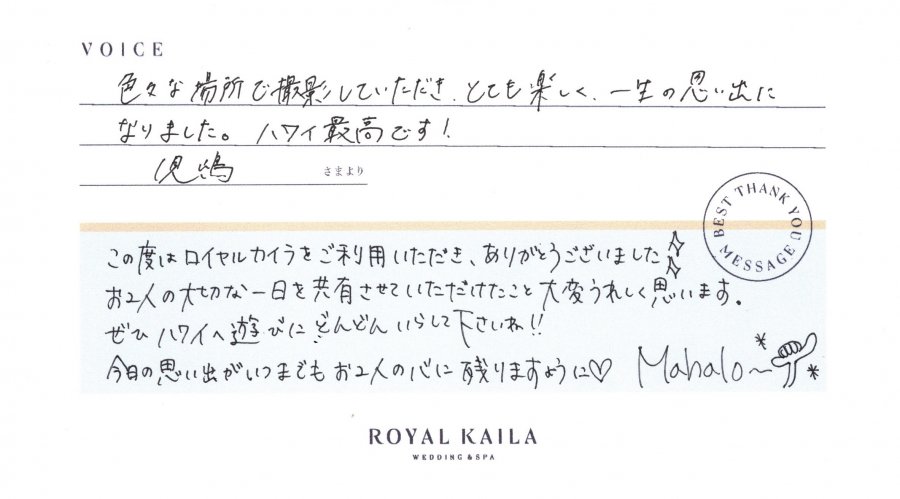 VOICE
色々な場所で撮影していただき、とても楽しく、一生の思い出に
なりました。ハワイ最高です！
児嶋 さまより
BEST THANK YOU MESSAGE
この度はロイヤルカイラをご利用いただき、ありがとうございました
お2人の大切な一日を共有させていただけたこと大変うれしく思います。
ぜひハワイへ遊びにどんどんいらして下さいね!!
今日の思い出がいつまでもお2人の心に残りますように♡ Mahalo～
ROYAL KAILA
WEDDING & SPA